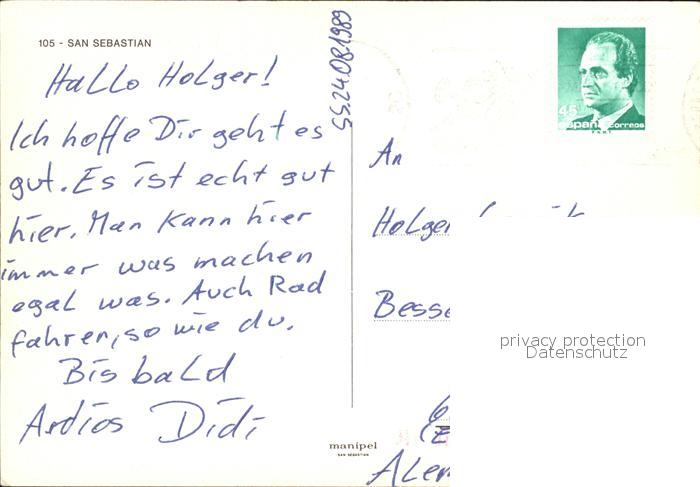 105 - SAN SEBASTIAN
Hallo Holger!
Ich hoffe Dir geht es
gut. Es ist echt gut
hier. Man kann hier
immer was machen
egal was. Auch Rad
fahren, so wie du.
Bis bald
Adios Didi
SS.24.08.1989
manipel
SAN SEBASTIAN
45
España correos
An
Holger
Besse
Aler
privacy protection
Datenschutz